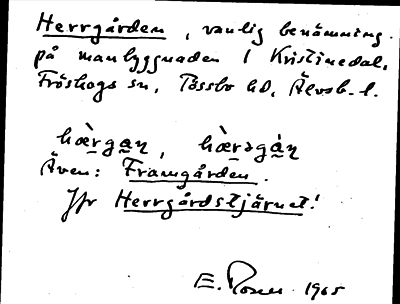 Herrgården, vanlig benämning
på manbyggnaden i Kristinedal,
Fröskogs sn, Tössbo hd, Älvsb. l.
hæ̀rgaṇ, hæ̀rəgàṇ
Även: Framgården.
Jfr Herrgårdstjärnet!
E. 1965